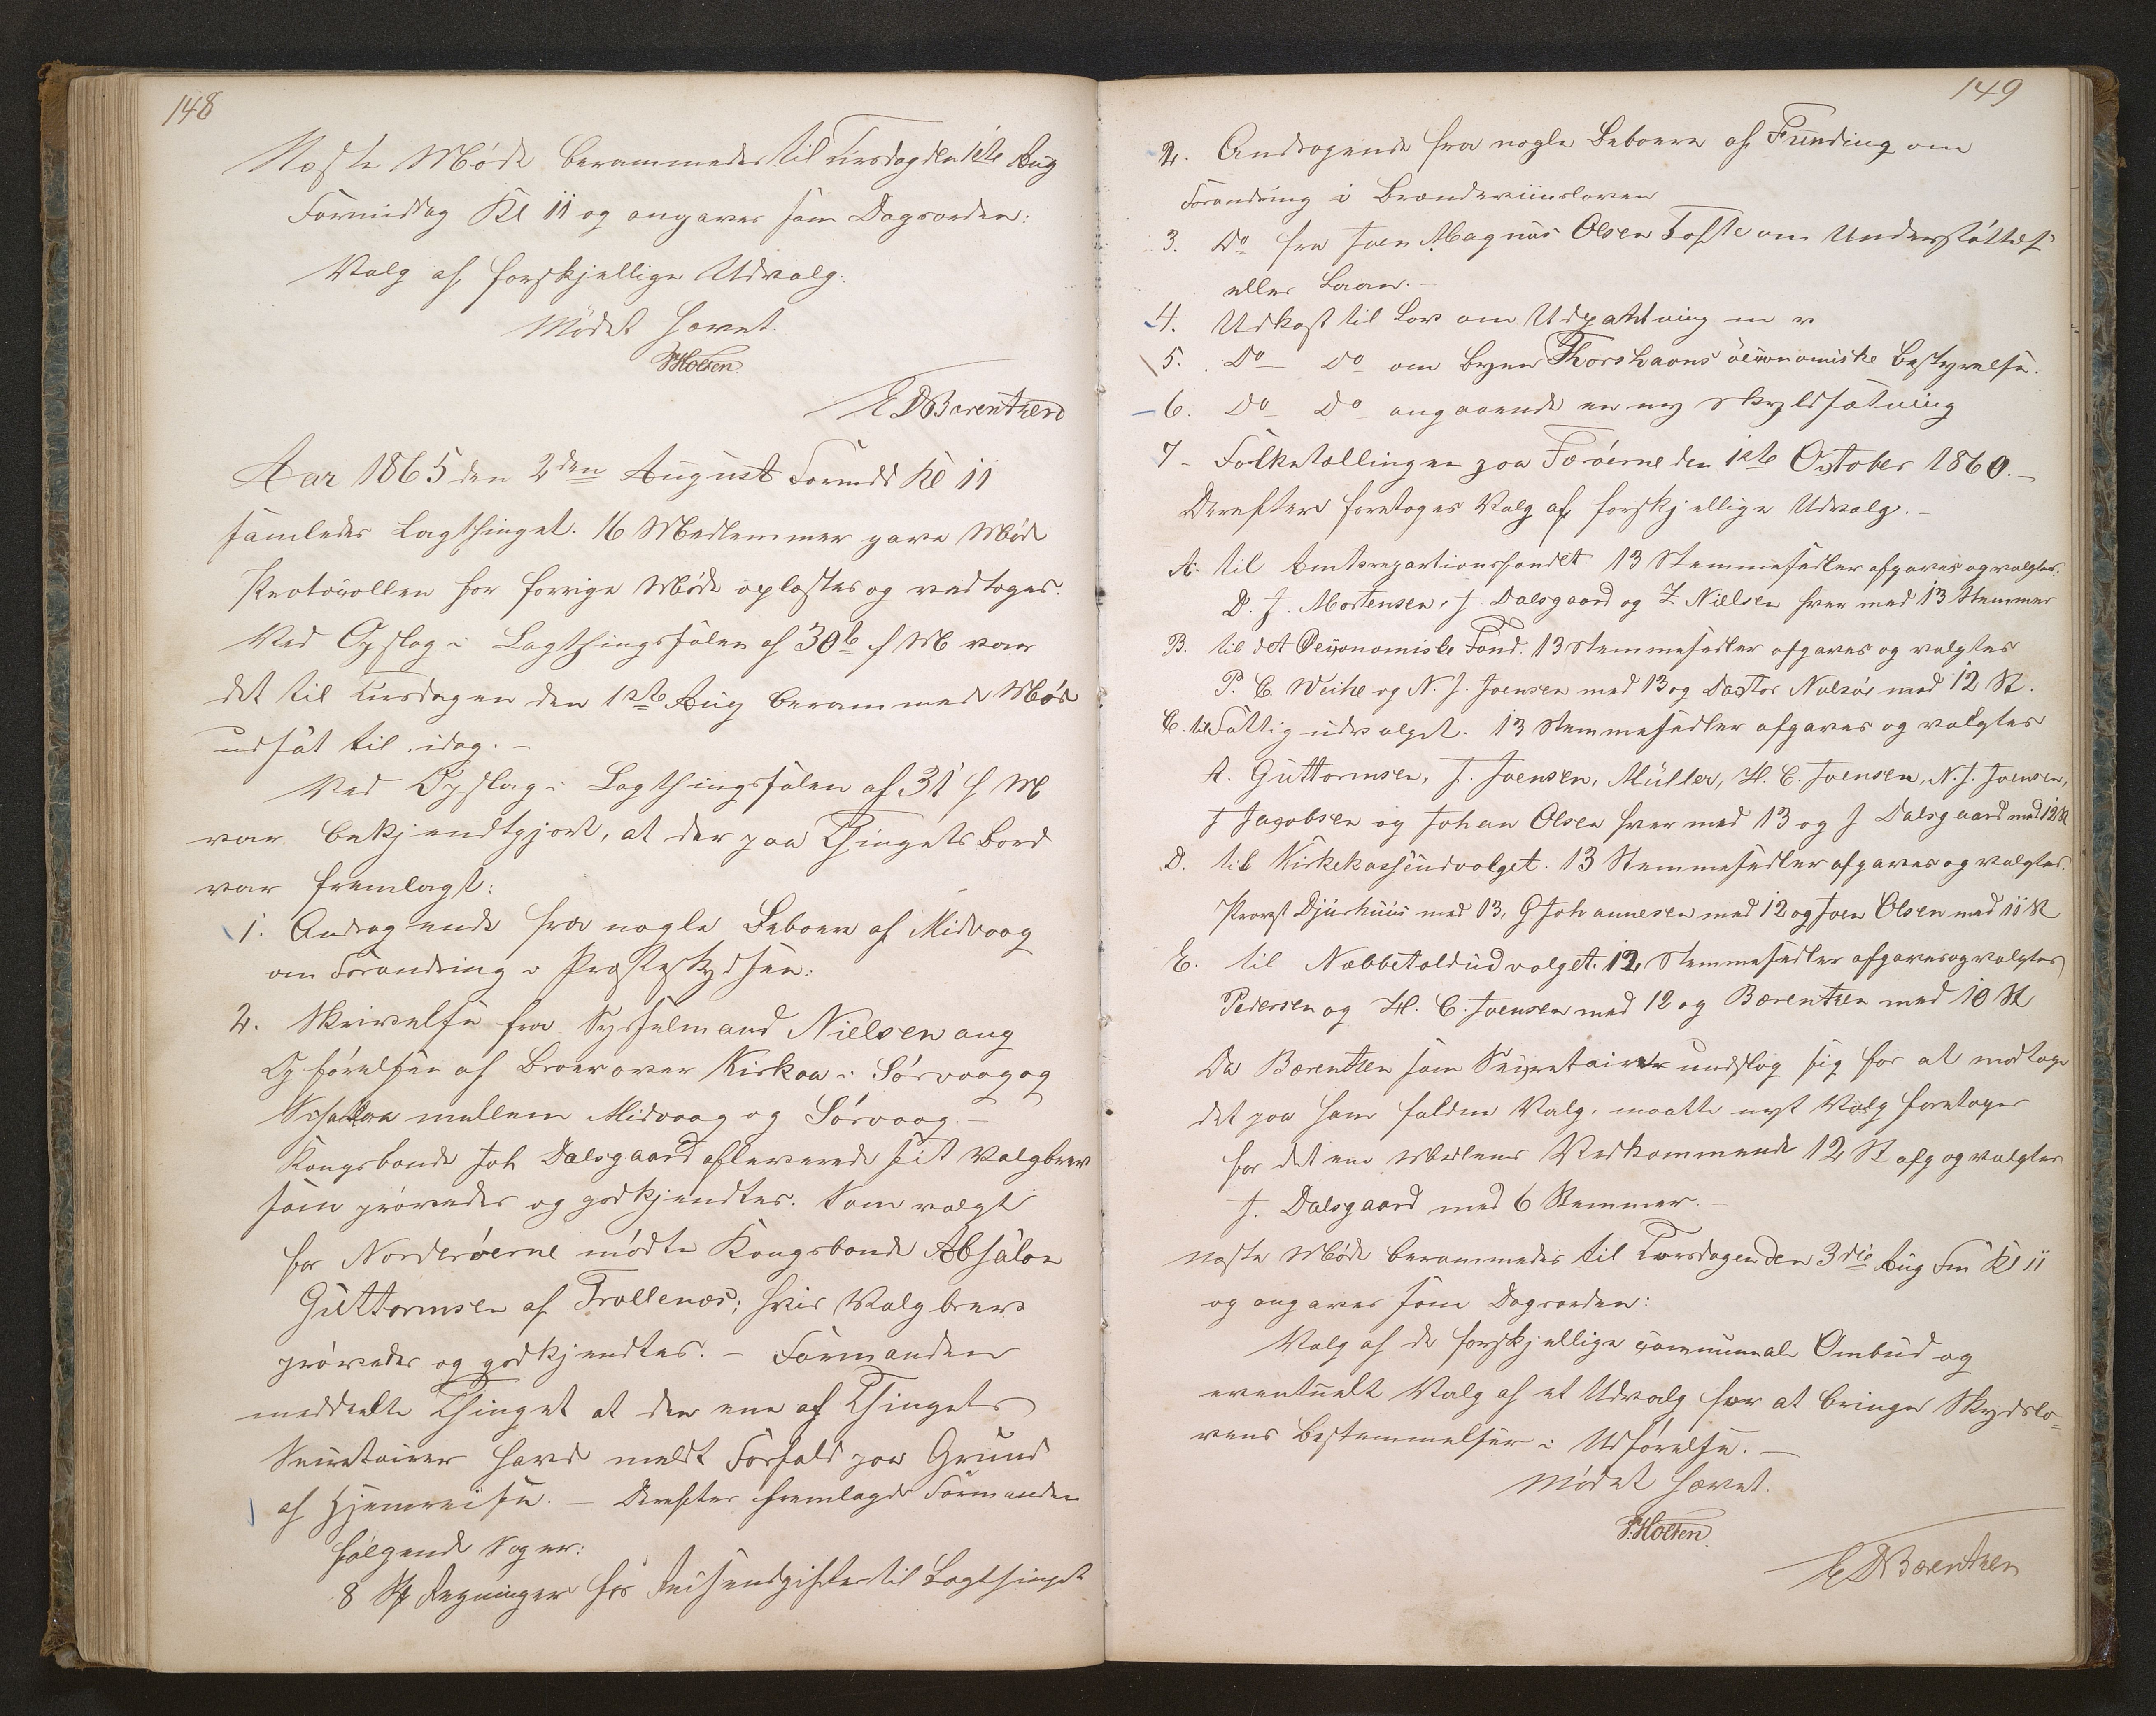 148
Næste Møde berammedes til Tirsdag den 1ste Aug
Formiddag Kl 11 og angaves som Dagsorden:
Valg af forskjellige Udvalg.
Mødet hævet.
Holten.
E D Bærentzen
Aar 1865 den 2den August Formd Kl 11
samledes Lagthinget. 16 Medlemmer gave Møde
Protocollen for forrige Møde oplæstes og vedtoges.
Ved Opslag i Lagthingssalen af 30te f M var
det til Tirsdagen den 1ste Aug berammede Møde
udsat til idag. –
Ved Opslag i Lagthingssalen af 31 f M
var bekjendtgjort, at der paa Thingets Bord
var fremlagt:
1. Andragende fra nogle Beboere af Midvaag
om Forandring i Præsteskydsen.
2. Skrivelse fra Sysselmand Nielsen ang
Opførelsen af Broer over Kirkaa i Sørvaag og
mellem Midvaag og Sørvaag. –
Kongsbonde Joh Dalsgaard afleverede sit Valgbrev
som prøvedes og godkjendtes. Som valgt
for Norderøerne mødte Kongsbonde Absalon
Guttormsen af Trollenæs; hvis Valgbrev
prøvedes og godkjendtes. – Formanden
meddeelte Thinget at den ene af Thingets
Secretairer havde meldt Forfald paa Grund
af Hjemreise. – Derefter fremlagde Formanden
følgende Sager:
8 St Regninger for Reiseudgifter til Lagthinget
149
2. Andragende fra nogle Beboere af Funding om
Forandring i Brændeviinsloven
3. Do fra Joen Magnus Olsen Tofte om Understøttelse
eller Laan. –
4. Udkast til Lov om Udpantning m v
5. Do – Do om Byen Thorshavns oeconomiske Bestyrelse.
6. Do – Do angaaende en ny Skyldsætning
7 – Folketællingen paa Færøerne den 1ste October 1860. –
Derefter foretoges Valg af forskjellige Udvalg. –
A. til Amtsrepartionsfondet 13 Stemmesedler afgaves og valgtes.
D. J. Mortensen, J. Dalsgaard og Z Nielsen hver med 13 Stemmer
B. til det Oeconomiske Fond. 13 Stemmesedler afgaves og valgtes
P. C. Weihe og N. J. Joensen med 13 og Doctor Nolsøe med 12 St.
C. til Fattigudvalget. 13 Stemmesedler afgaves og valgtes
A. Guttormsen, J. Joensen, Müller, H. C. Joensen, N. J. Joensen,
J Jacobsen og Johan Olsen hver med 13 og J Dalsgaard med 12 St
D. til Kirkekasseudvalget. 13 Stemmesedler afgaves og valgtes.
Provst Djurhuus med 13, G Johannesen med 12 og Joen Olsen med 11 St
E. til Næbbetoldudvalget. 12 Stemmesedler afgaves og valgtes
Pedersen og H. C. Joensen med 12 og Bærentzen med 10 St
Da Bærentzen som Secretair undslog sig for at modtage
det paa ham faldne Valg, maatte nyt Valg foretages
for det ene Medlems Vedkommende 12 St afg og valgtes
J. Dalsgaard med 6 Stemmer. –
næste Møde berammedes til Torsdagen den 3die Aug Fm Kl 11
og angaves som Dagsorden:
Valg af de forskjellige communale Ombud og
eventuelt Valg af et Udvalg for at bringe Skydslo-
vens Bestemmelser i Udførelse. –
Mødet hævet.
Holten.
E D Bærentzen